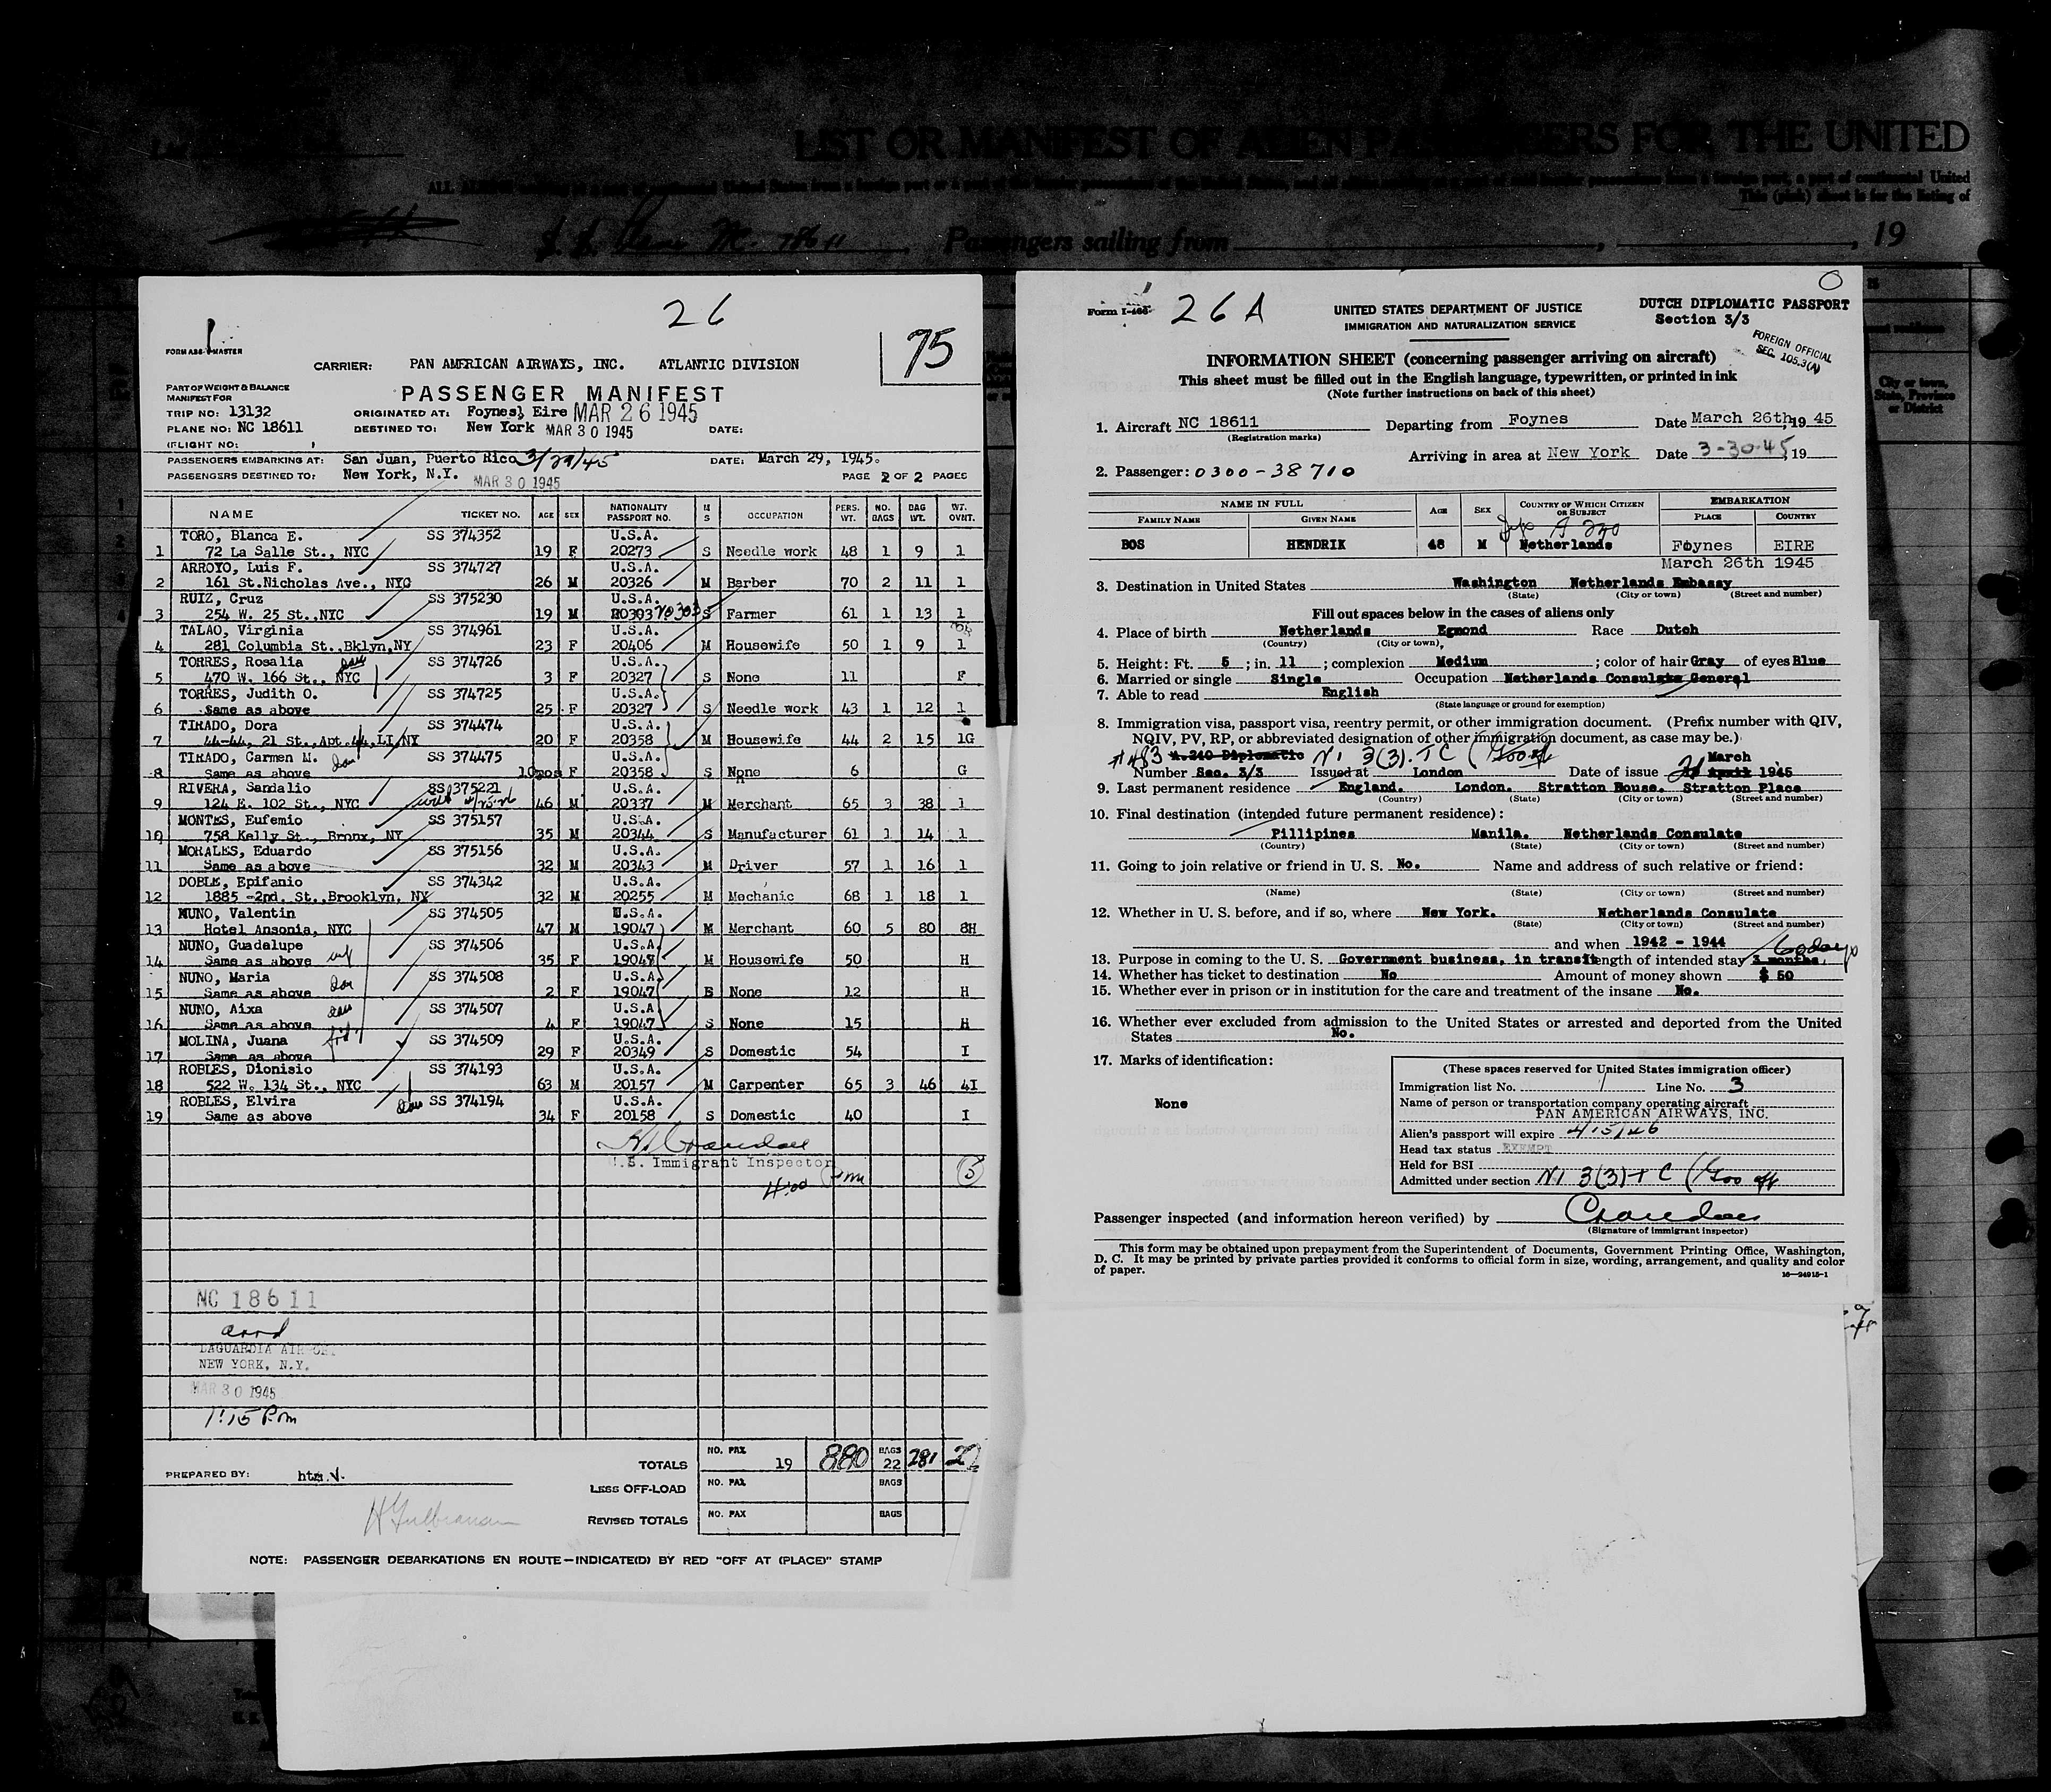 LIST OR MANIFEST OF ALIEN PASSENGERS FOR THE UNITED
This (pink) sheet is for the listing of
Passengers sailing from , , 19
26
75
CARRIER: PAN AMERICAN AIRWAYS, INC. ATLANTIC DIVISION
PART OF WEIGHT & BALANCE
MANIFEST FOR
PASSENGER MANIFEST
TRIP NO: 13132 ORIGINATED AT: Foynes, Eire MAR 26 1945
PLANE NO: NC 18611 DESTINED TO: New York MAR 30 1945 DATE:
(FLIGHT NO:
PASSENGERS EMBARKING AT: San Juan, Puerto Rico 3/29/45 DATE: March 29, 1945.
PASSENGERS DESTINED TO: New York, N.Y. MAR 30 1945 PAGE 2 OF 2 PAGES
NAME TICKET NO. AGE SEX NATIONALITY PASSPORT NO. M S OCCUPATION PERS. WT. NO. BAGS BAG WT. WT. OVNT.
TORO, Blanca E. SS 374352 U.S.A.
1 72 La Salle St., NYC 19 F 20273 S Needle work 48 1 9 1
ARROYO, Luis F. SS 374727 U.S.A.
2 161 St.Nicholas Ave., NYC 26 M 20326 M Barber 70 2 11 1
RUIZ, Cruz SS 375230 U.S.A.
3 254 W. 25 St.,NYC 19 M 20303 20303 S Farmer 61 1 13 1
TALAO, Virginia SS 374961 U.S.A.
4 281 Columbia St.,Bklyn,NY 23 F 20406 M Housewife 50 1 9 1
TORRES, Rosalia dau SS 374726 U.S.A.
5 470 W. 166 St., NYC 3 F 20327 S None 11 F
TORRES, Judith O. SS 374725 U.S.A.
6 Same as above 25 F 20327 S Needle work 43 1 12 1
TIRADO, Dora SS 374474 U.S.A.
7 44-44, 21 St.,Apt.44,LI,NY 20 F 20358 M Housewife 44 2 15 1G
TIRADO, Carmen M. dau SS 374475 U.S.A.
8 Same as above 10mos F 20358 S None 6 G
RIVERA, Sandalio SS 375221 U.S.A.
9 124 E. 102 St., NYC 46 M 20337 M Merchant 65 3 38 1
MONTES, Eufemio SS 375157 U.S.A.
10 758 Kelly St., Bronx, NY 35 M 20344 S Manufacturer 61 1 14 1
MORALES, Eduardo SS 375156 U.S.A.
11 Same as above 32 M 20343 M Driver 57 1 16 1
DOBLE, Epifanio SS 374342 U.S.A.
12 1885 -2nd. St.,Brooklyn, NY 32 M 20255 M Mechanic 68 1 18 1
NUNO, Valentin SS 374505 U.S.A.
13 Hotel Ansonia, NYC 47 M 19047 M Merchant 60 5 80 8H
NUNO, Guadalupe SS 374506 U.S.A.
14 Same as above wf 35 F 19048 M Housewife 50 H
NUNO, Maria SS 374508 U.S.A.
15 Same as above dau 2 F 19047 S None 12 H
NUNO, Aixa dau SS 374507 U.S.A.
16 Same as above 4 F 19047 S None 15 H
MOLINA, Juana frd SS 374509 U.S.A.
17 Same as above 29 F 20349 S Domestic 54 I
ROBLES, Dionisio SS 374193 U.S.A.
18 522 W. 134 St., NYC 63 M 20157 M Carpenter 65 3 46 4I
ROBLES, Elvira dau SS 374194 U.S.A.
19 Same as above 34 F 20158 S Domestic 40 I
U.S. Immigrant Inspector
4:00 pm
5
NC 18611
arrd
LAGUARDIA AIRPORT
NEW YORK, N.Y.
MAR 30 1945
1:15 P.m
TOTALS NO. PAX 19 880 BAGS 22 281
PREPARED BY:
LESS OFF-LOAD NO. PAX BAGS
REVISED TOTALS NO. PAX BAGS
NOTE: PASSENGER DEBARKATIONS EN ROUTE—INDICATE(D) BY RED "OFF AT (PLACE)" STAMP
26 A
Form I-466
UNITED STATES DEPARTMENT OF JUSTICE
IMMIGRATION AND NATURALIZATION SERVICE
DUTCH DIPLOMATIC PASSPORT
Section 3/3
FOREIGN OFFICIAL
SEC. 105.3(A)
INFORMATION SHEET (concerning passenger arriving on aircraft)
This sheet must be filled out in the English language, typewritten, or printed in ink
(Note further instructions on back of this sheet)
1. Aircraft NC 18611 Departing from Foynes Date March 26th, 19 45
(Registration marks)
Arriving in area at New York Date 3-30-45, 19
2. Passenger: 0300-38710
NAME IN FULL AGE SEX COUNTRY OF WHICH CITIZEN OR SUBJECT EMBARKATION
FAMILY NAME GIVEN NAME PLACE COUNTRY
BOS HENDRIK 48 M Netherlands Foynes EIRE
March 26th 1945
3. Destination in United States Washington Netherlands Embassy
(State) (City or town) (Street and number)
Fill out spaces below in the cases of aliens only
4. Place of birth Netherlands Egmond Race Dutch
(Country) (City or town)
5. Height: Ft. 5 ; in. 11 ; complexion Medium ; color of hair Gray of eyes Blue
6. Married or single Single Occupation Netherlands Consulate General
7. Able to read English
(State language or ground for exemption)
8. Immigration visa, passport visa, reentry permit, or other immigration document. (Prefix number with QIV,
NQIV, PV, RP, or abbreviated designation of other immigration document, as case may be.)
#483 A.240 Diplomatic N1 3(3). TC (Goo off March
Number Sec. 3/3 Issued at London Date of issue 21 April 1945
9. Last permanent residence England. London. Stratton House. Stratton Place
(Country) (State) (City or town) (Street and number)
10. Final destination (intended future permanent residence):
Pillipines Manila. Netherlands Consulate
(Country) (State) (City or town) (Street and number)
11. Going to join relative or friend in U. S. No. Name and address of such relative or friend:
(Name) (State) (City or town) (Street and number)
12. Whether in U. S. before, and if so, where New York. Netherlands Consulate
(State) (City or town) (Street and number)
and when 1942 - 1944 60 days
13. Purpose in coming to the U. S. Government business, in transit length of intended stay 3 months.
14. Whether has ticket to destination No Amount of money shown $ 50
15. Whether ever in prison or in institution for the care and treatment of the insane No.
16. Whether ever excluded from admission to the United States or arrested and deported from the United
States No.
17. Marks of identification:
None
(These spaces reserved for United States immigration officer)
Immigration list No. 1 Line No. 3
Name of person or transportation company operating aircraft
PAN AMERICAN AIRWAYS, INC.
Alien's passport will expire 4/15/46
Head tax status EXEMPT
Held for BSI
Admitted under section N1 3(3) TC (Goo off
Passenger inspected (and information hereon verified) by
(Signature of immigrant inspector)
This form may be obtained upon prepayment from the Superintendent of Documents, Government Printing Office, Washington,
D. C. It may be printed by private parties provided it conforms to official form in size, wording, arrangement, and quality and color
of paper. 16—24915-1